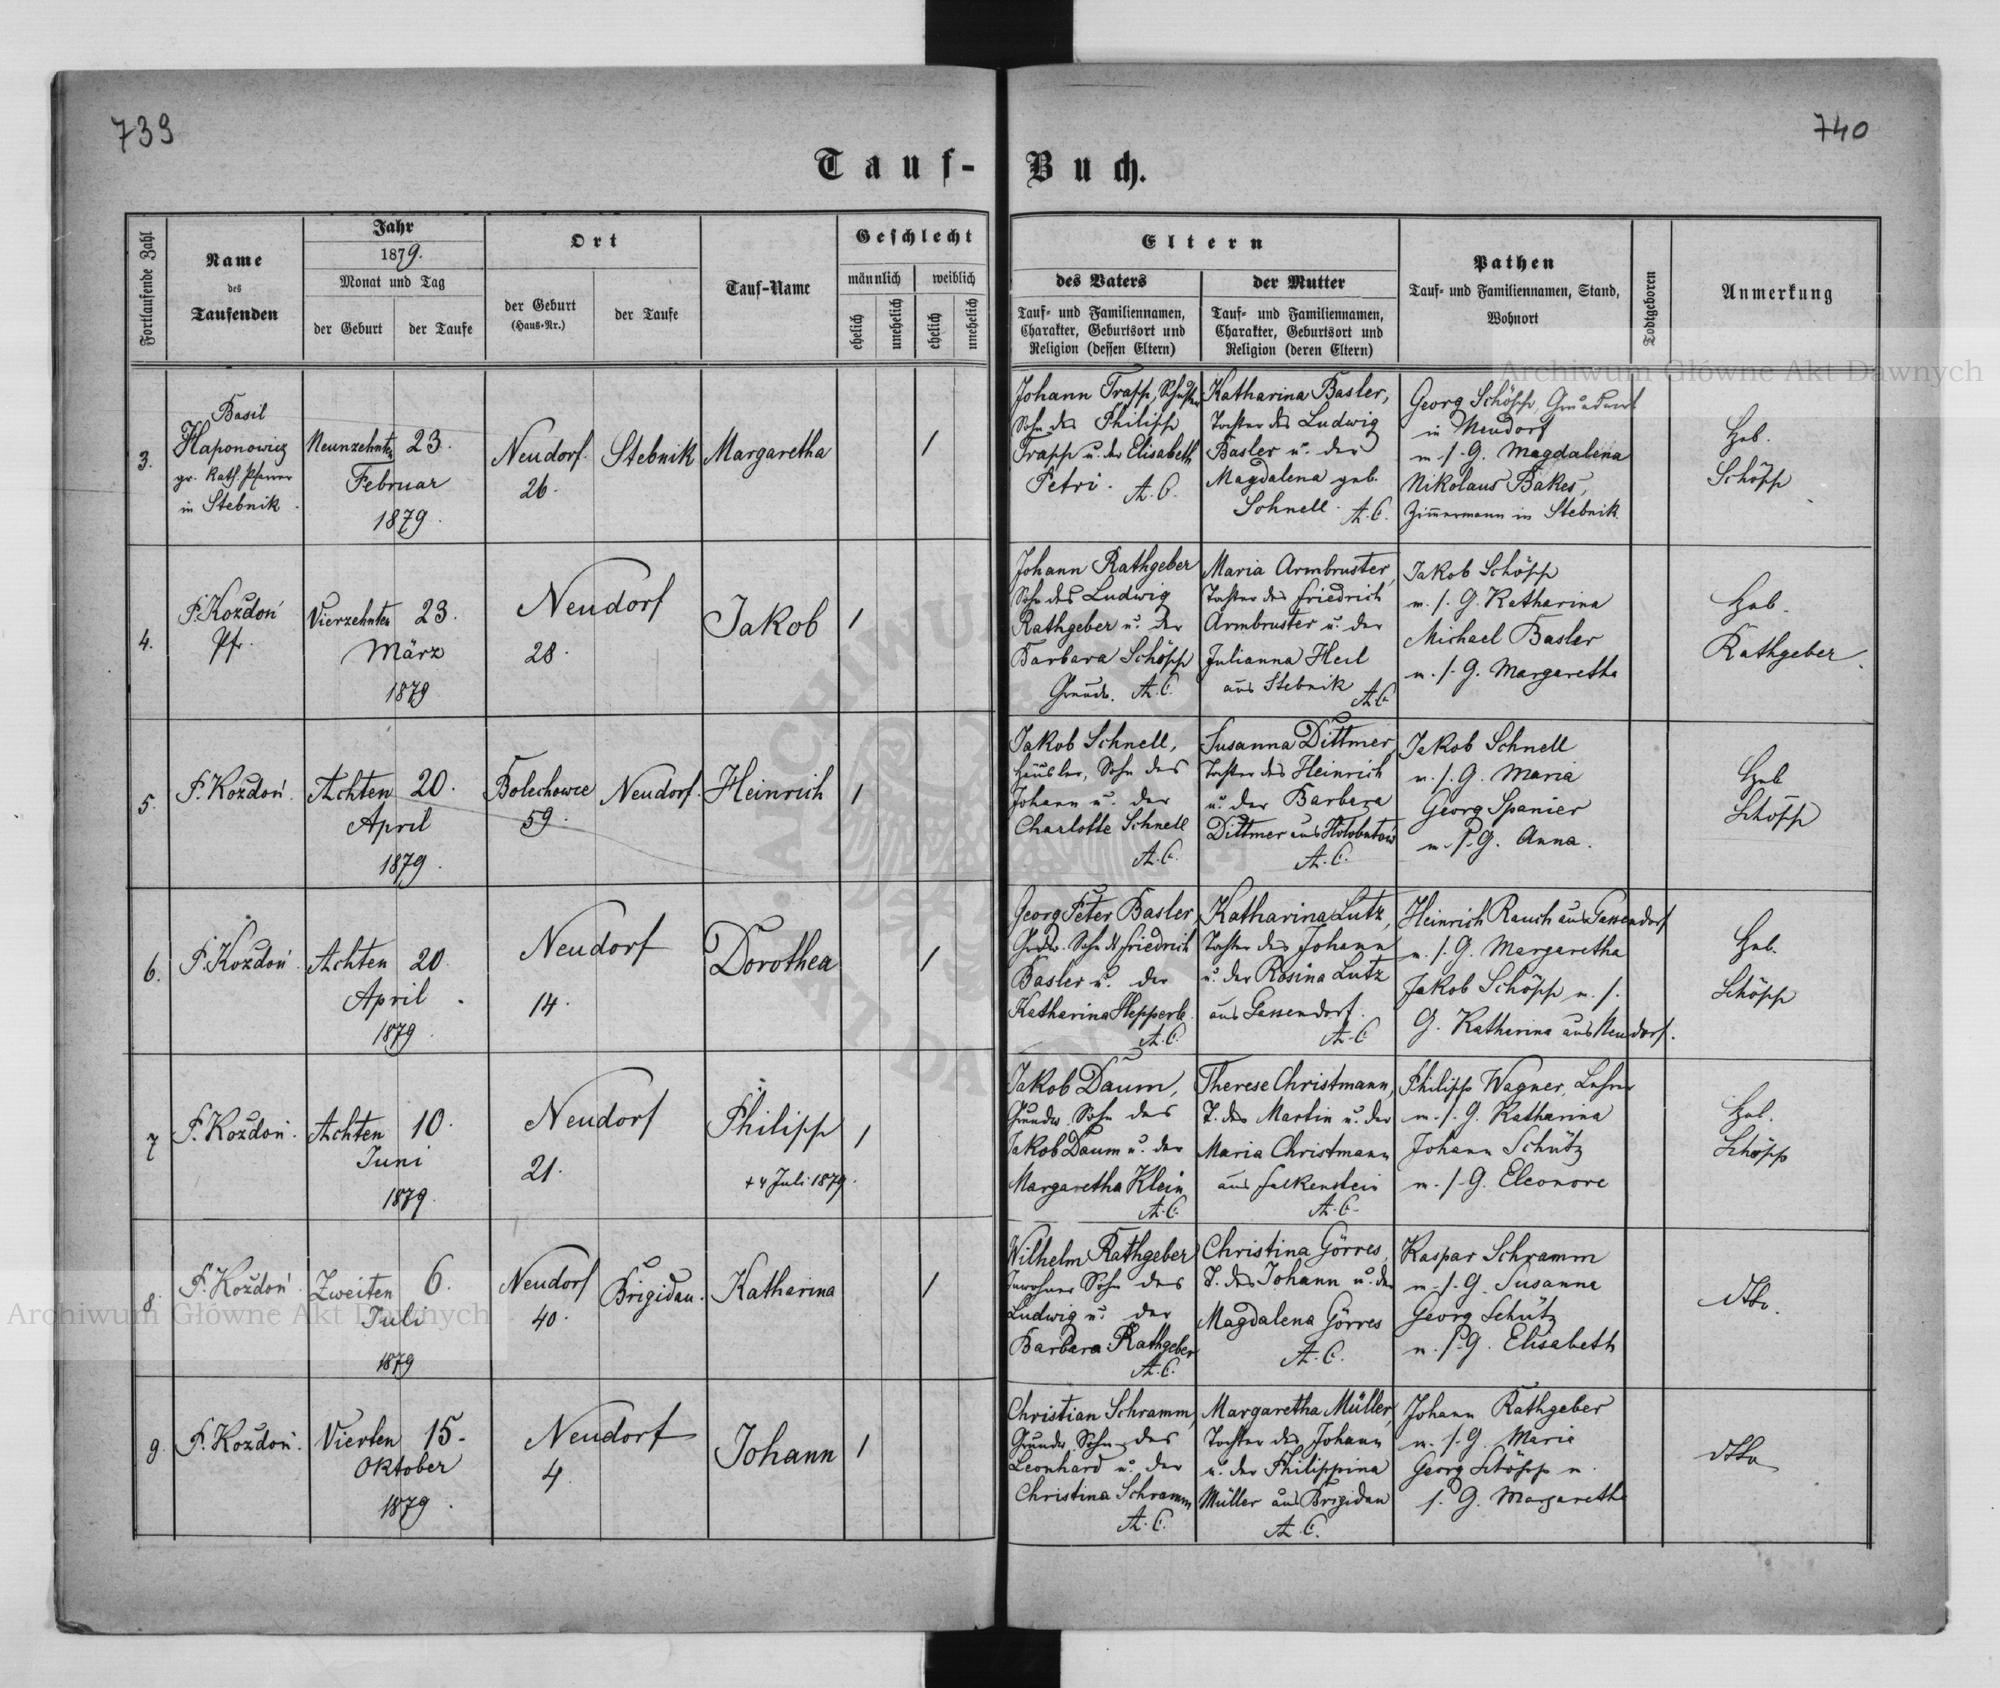 739
740
Tauf-Buch.
Fortlaufende Zahl
Name
des
Taufenden
Jahr
1879.
Monat und Tag
der Geburt
der Taufe
Ort
der Geburt
(Haus-Nr.)
der Taufe
Tauf-Name
Geschlecht
männlich
weiblich
ehelich
unehelich
ehelich
unehelich
Eltern
des Vaters
Tauf- und Familiennamen,
Charakter, Geburtsort und
Religion (dessen Eltern)
der Mutter
Tauf- und Familiennamen,
Charakter, Geburtsort und
Religion (deren Eltern)
Pathen
Tauf- und Familiennamen, Stand,
Wohnort
Todtgeboren
Anmerkung
3.
Basil
Haponowicz
gr. Kath. Pfarrer
in Stebnik.
Neunzehnten 23.
Februar
1879.
Neudorf.
26.
Stebnik
Margaretha
1
Johann Trapp, Schuster
Sohn des Philipp
Trapp u. der Elisabeth
Petri. A.C.
Katharina Basler,
Tochter des Ludwig
Basler u. der
Magdalena geb.
Sohnell. A.C.
Georg Schöpp, Grundwirt
in Neudorf
m. s. G. Magdalena
Nikolaus Bakes,
Zimmermann in Stebnik.
Heb.
Schöpp
4.
P. Kozdoń
Pfr.
Vierzehnten 23.
März
1879
Neudorf
28.
Jakob
1
Johann Rathgeber
Sohn des Ludwig
Rathgeber u. der
Barbara Schöpp
Grundw. A.C.
Maria Armbruster,
Tochter des Friedrich
Armbruster u. der
Julianna Heil
aus Stebnik A.C.
Jakob Schöpp
m. s. G. Katharina
Michael Basler
m. s. G. Margaretha
Heb.
Rathgeber.
5.
P. Kozdoń.
Achten 20.
April
1879.
Bolechowce
59.
Neudorf.
Heinrich
1
Jakob Schnell,
Häusler, Sohn des
Johann u. der
Charlotte Schnell
A.C.
Susanna Dittmer
Tochter des Heinrich
u. der Barbara
Dittmer aus Holobutów
A.C.
Jakob Schnell
m. s. G. Maria
Georg Spanier
m. s. G. Anna.
Heb
Schöpp
6.
P. Kozdoń.
Achten 20.
April.
1879.
Neudorf
14.
Dorothea
1
Georg Peter Basler
Grdw. Sohn d. Friedrich
Basler u. der
Katharina Hepperle.
A.C.
Katharina Lutz,
Tochter des Johann
u. der Rosina Lutz
aus Gassendorf.
A.C.
Heinrich Rauch aus Gassendorf
m. s. G. Margaretha
Jakob Schöpp m. s.
G. Katharina aus Neudorf.
Heb.
Schöpp
7
P. Kozdoń.
Achten 10.
Juni
1879.
Neudorf
21.
Philipp
+ 4 Juli 1879.
1
Jakob Daum,
Grundw. Sohn des
Jakob Daum u. der
Margaretha Klein
A.C.
Therese Christmann,
T. des Martin u. der
Maria Christmann
aus Falkenstein
A.C.
Philipp Wagner, Lehrer
m. s. G. Katharina
Johann Schütz
m. s. G. Eleonore
Heb.
Schöpp
8.
P. Kozdoń.
Zweiten 6.
Juli
1879
Neudorf
40.
Brigidau.
Katharina
1
Wilhelm Rathgeber
Inwohner Sohn des
Ludwig u. der
Barbara Rathgeber
A.C.
Christina Görres,
T. des Johann u. der
Magdalena Görres
A.C.
Kaspar Schramm
m. s. G. Susanna
Georg Schütz
m. s. G. Elisabeth
dtto.
9.
P. Kozdoń.
Vierten 15.
Oktober
1879.
Neudorf
4.
Johann
1
Christian Schramm,
Grundw. Sohn des
Leonhard u. der
Christina Schramm
A.C.
Margaretha Müller,
Tochter des Johann
u. der Philippina
Müller aus Brigidau
A.C.
Johann Rathgeber
m. s. G. Marie
Georg Schöpp m.
s. G. Margaretha
dtto
Archiwum Główne Akt Dawnych
Archiwum Główne Akt Dawnych